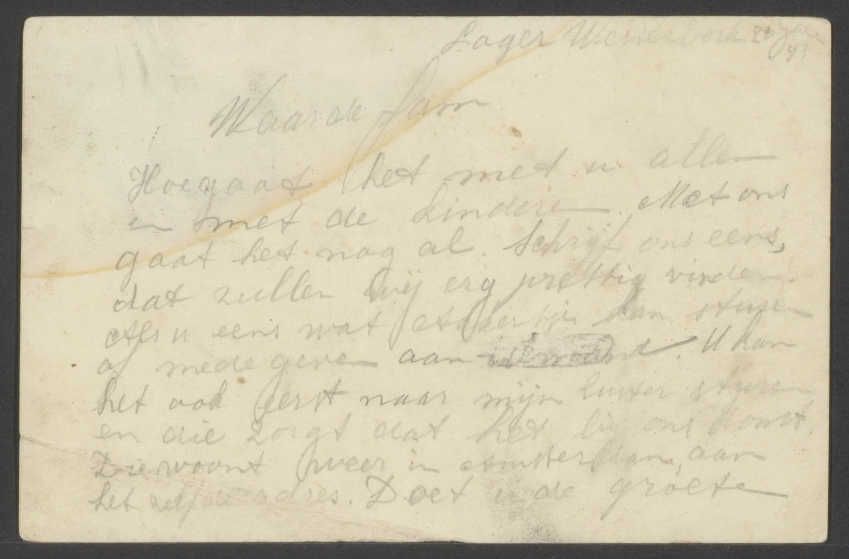 Lager Westerbork 23 Jan 43
Waarde Fam
Hoe gaat het met u allen
en met de kinderen. Met ons
gaat het nog al. Schrijf ons eens,
dat zullen wij erg prettig vinden.
Als u eens wat kan sturen
of mede geven aan iemand. U kan
het ook eerst naar mijn zuster sturen
en die zorgt dat het bij ons komt.
Die woont weer in Amsterdam, aan
het zelfde adres. Doet u de groeten